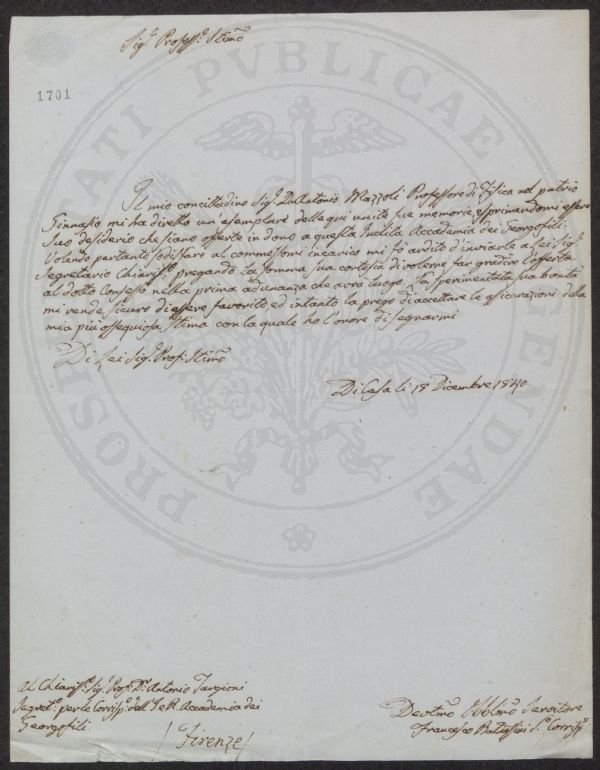 Sig.r Profess.r Stimo
1701
Il mio concittadino Sig.r Dr Antonio Mazzoli Professore di Fisica nel patrio
Ginnasio mi ha diretto un'esemplare delle qui unite sue memorie, esprimendomi essere
suo desiderio che siano offerte in dono a questa Inclita Accademia dei Georgofili.
Volendo pertanto sodisfare al commessomi incarico mi fò ardito d'inviarle a Lei Sig.r
Segretario Chiariss.o pregando la somma sua cortesia di volerne far gradire l'offerta
al dotto Consesso nella prima adunanza che avrà luogo. La sperimentata sua bontà
mi rende sicuro di essere favorito, ed intanto la prego di accettare le assicurazioni della
mia più ossequiosa stima con la quale ho l'onore di segnarmi
Di Lei Sig.r Prof.r Stimo
Di Casa li 18 Dicembre 1840
Al Chiariss.o Sig.r Prof.r Dr. Antonio Targioni
Segret.o per le Corrisp.e dell'I e R. Accademia dei
Georgofili
/ Firenze /
Devotmo Obblmo Servitore
Francesco S.o Corrisp.e
PROSPERITATI PUBLICAE AUGENDAE